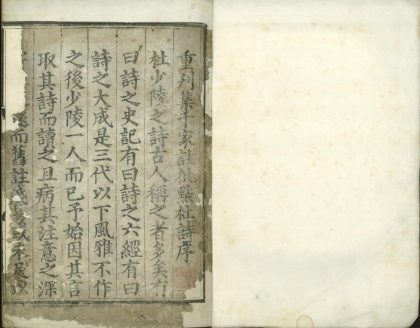 重刊集千家註批點杜詩序
杜少陵之詩古人稱之者多矣有
曰詩之史記有曰詩之六經有曰
詩之大成是三代以下風雅不作
之後少陵一人而已予始因其言
取其詩而讀之且病其注意之深
而舊註